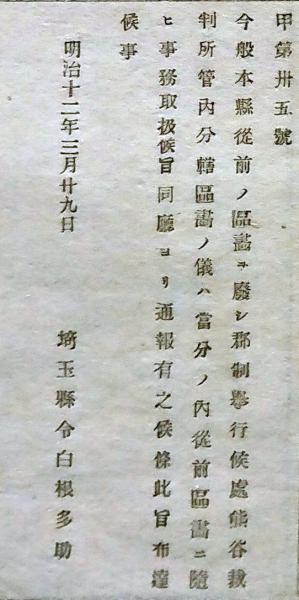 甲第卅五號
今般本縣從前ノ區畵ヲ廢シ郡制擧行候處熊谷裁
判所管內分轄區畵ノ儀ハ當分ノ內從前區畵ニ隨
ヒ事務取扱候旨同廳ヨリ通報有之候條此旨布達
候事
明治十二年三月廿九日
埼玉縣令白根多助